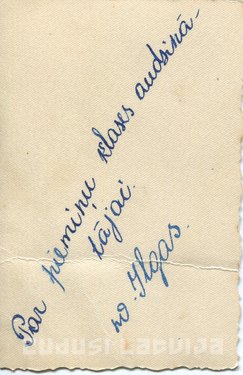 Par piemiņu klases audzinā-
tājai.
no Ilgas.
zudusi Latvija